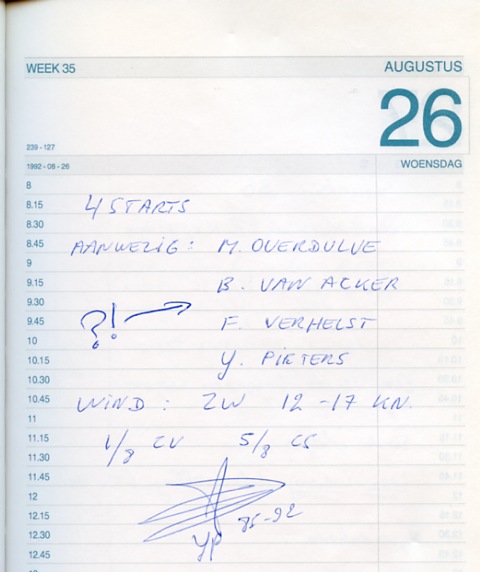 WEEK 35
AUGUSTUS
26
239 - 127
1992 - 08 - 26
WOENSDAG
8
8.15 4 STARTS
8.30
8.45 AANWEZIG : M. OVERDULVE
9
9.15 B. VAN ACKER
9.30
9.45 ?! → F. VERHELST
10
10.15 Y. PIETERS
10.30
10.45 WIND : ZW 12 -17 KN.
11
11.15 1/8 CU 5/8 CS
11.30
11.45
12
12.15 85-92
12.30 YP
12.45